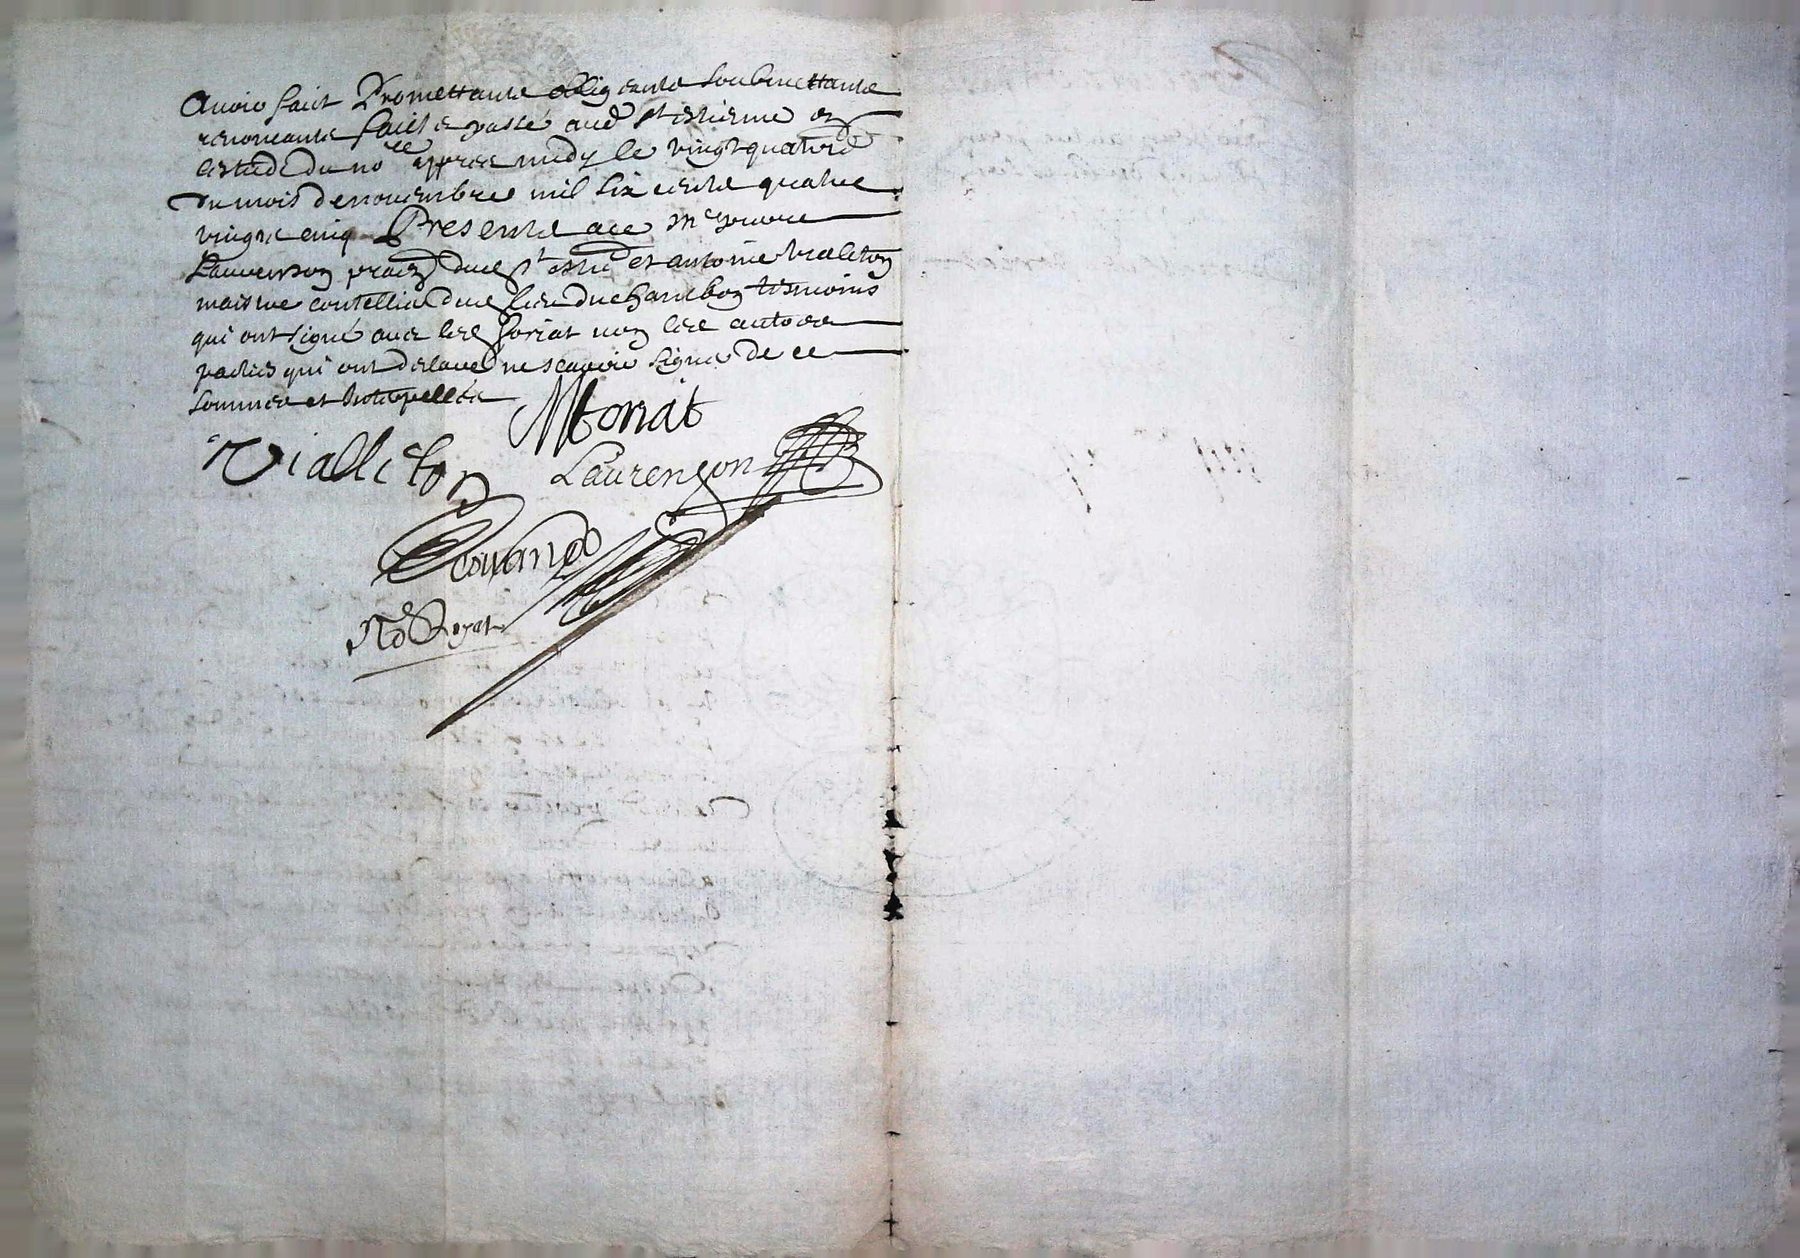 avoir faict Promettants obligeants soubmettants
renonceants faict et passé aud St estienne en
lestude du nore appres midy le vingt quatre
du mois de novembre mil six cents quatre
vingts cinq Presents a ce Me
Laurenson pratn dud St estne et antoine vialeton
maistre coutellier dud lieu du chambon tesmoins
qui ont signé avec led Joriat non les autres
parties qui ont declaré ne scavoir signer de ce
sommees et interpellées
M Joriat
Vialleton Laurenson
Nore Royal